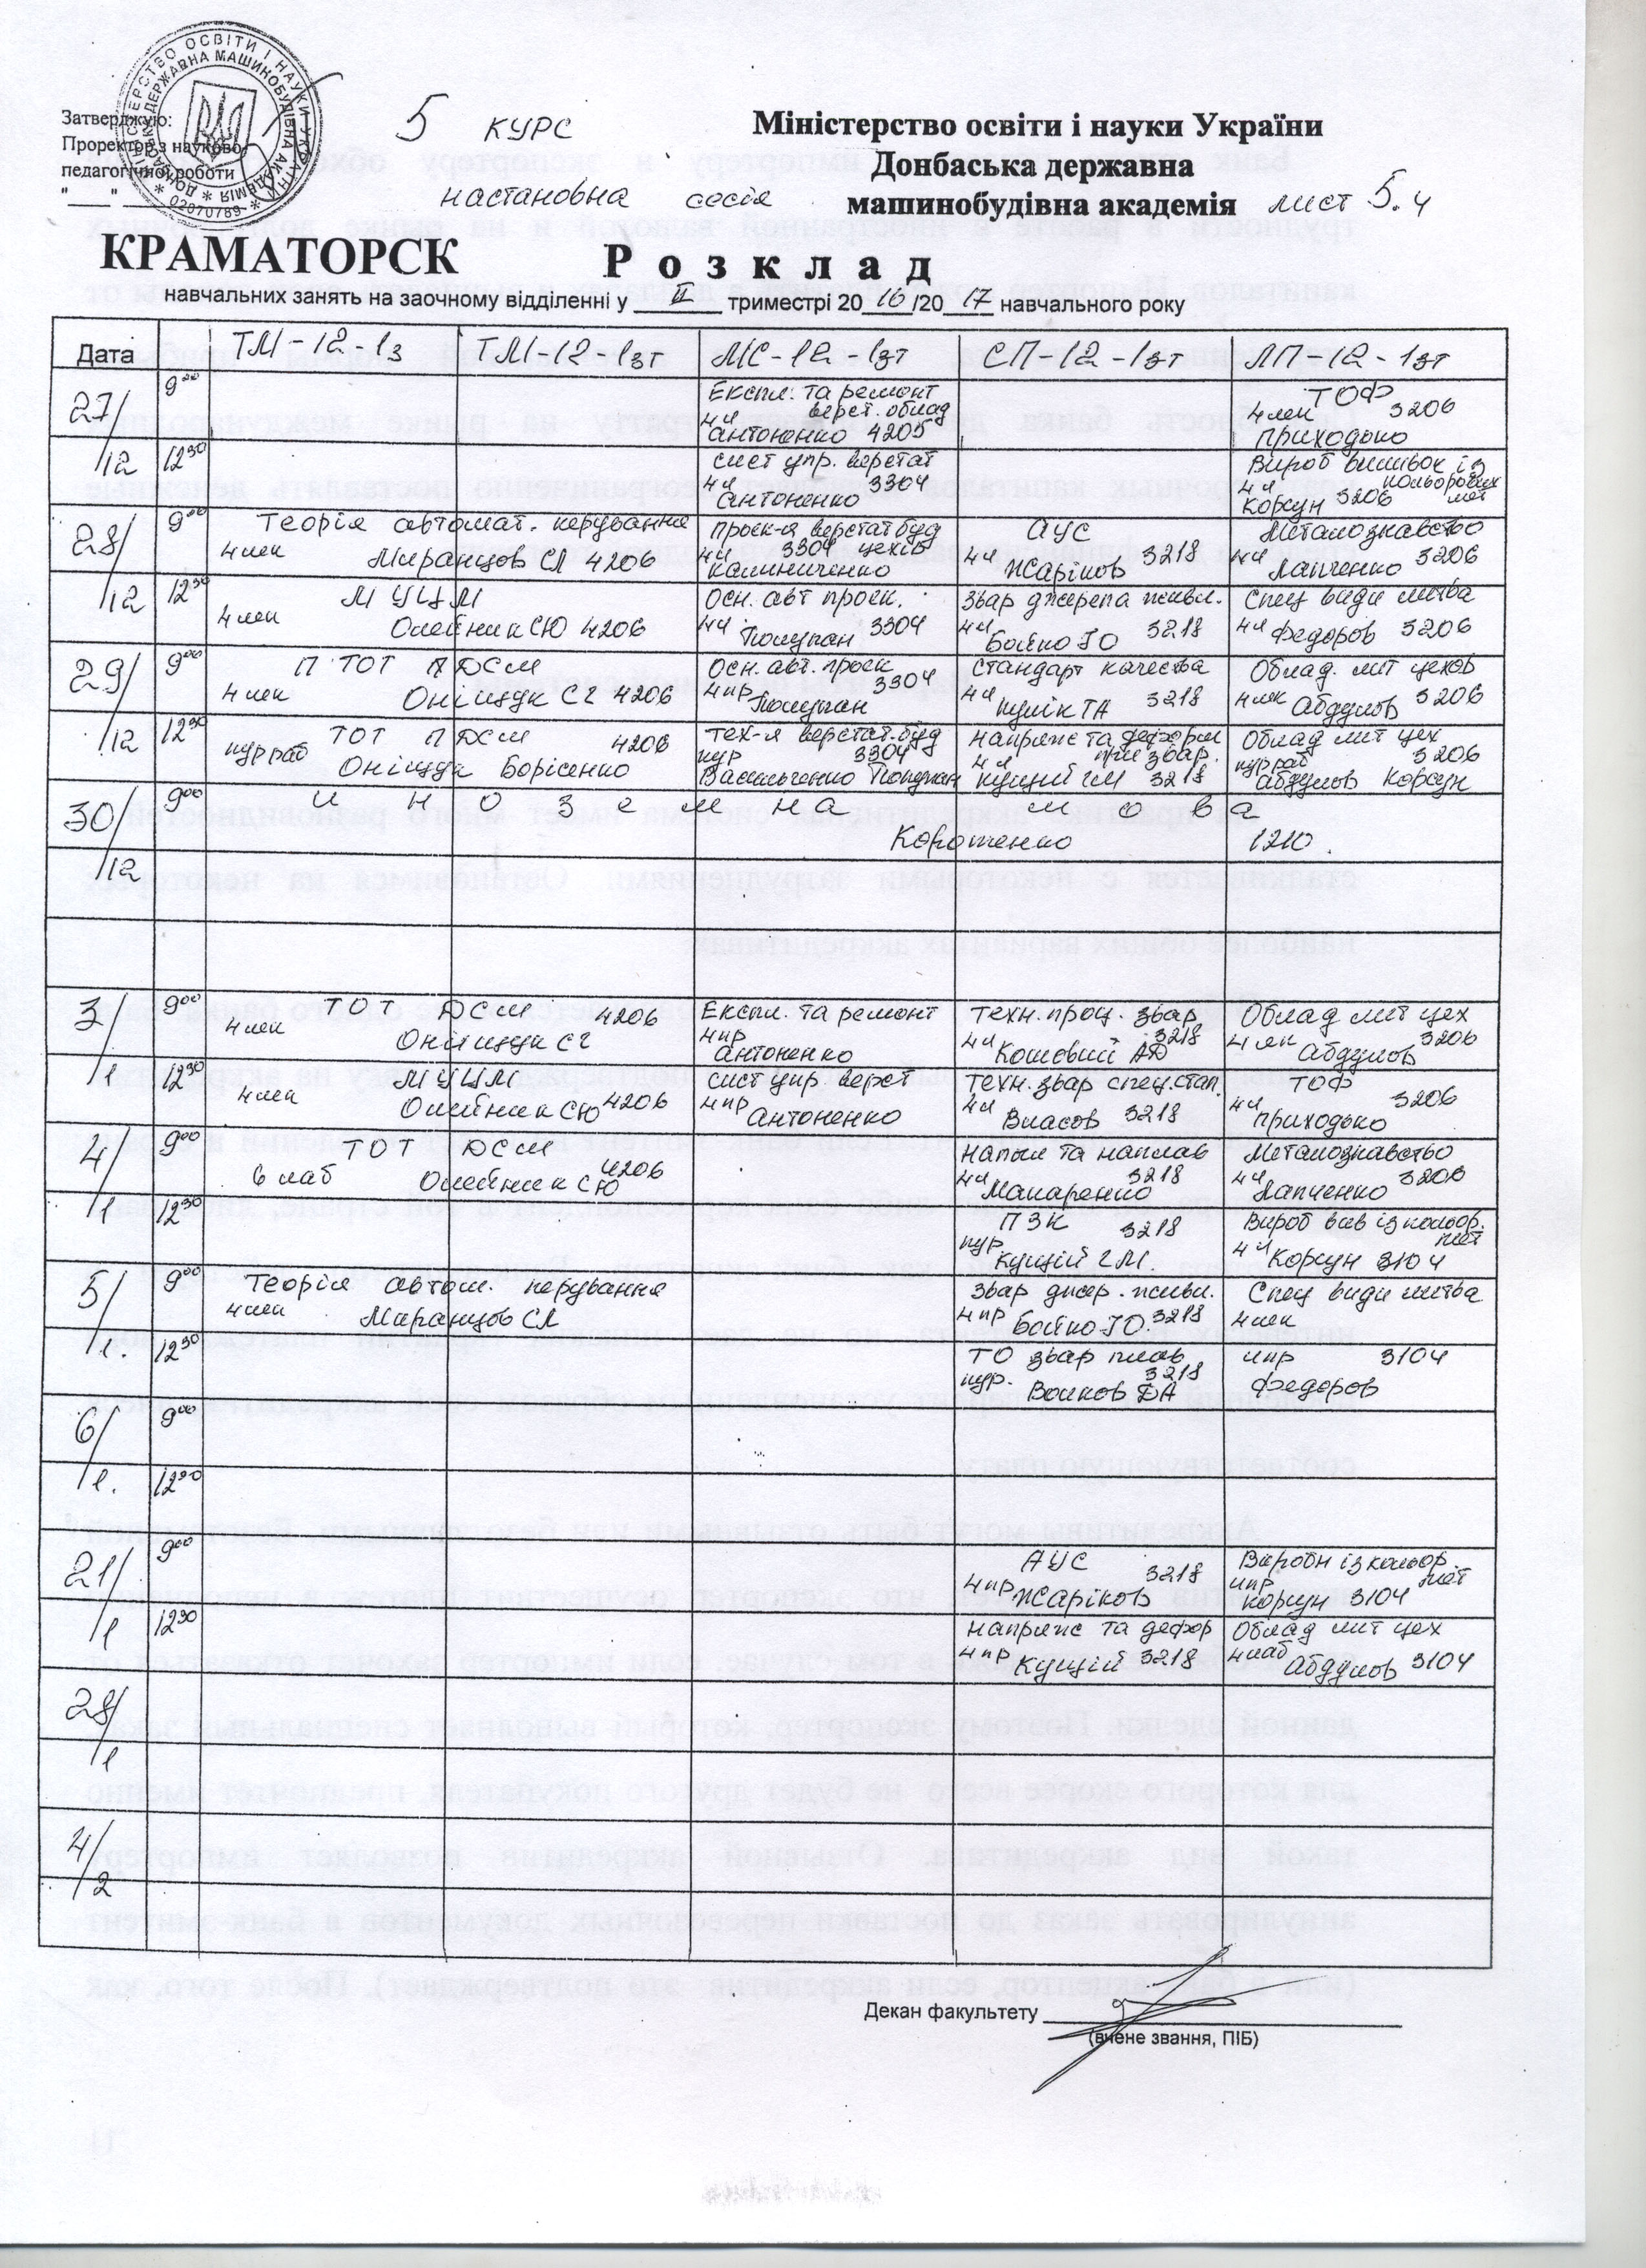 МІНІСТЕРСТВО ОСВІТИ І НАУКИ УКРАЇНИ
ДЕРЖАВНА МАШИНОБУДІВНА АКАДЕМІЯ
02070789
Затверджую:
Проректор з науково-
педагогічної роботи
"____" ____
5 курс
настановна сесія
Міністерство освіти і науки України
Донбаська державна
машинобудівна академія лист 5.4
КРАМАТОРСК Розклад
навчальних занять на заочному відділенні у II триместрі 2016/2017 навчального року
Дата ТМ-12-1з ТМ-12-1зт МС-12-1зт СП-12-1зт ЛП-12-1зт
27/12
9⁰⁰
Експл. та ремонт
верст. облад
4л Антоненко 4205
ТОФ
4 лек 3206
Приходько
12³⁰
сист упр. верстат
4л 3304
Антоненко
Вироб виливок із
4л кольорових
Корсун 3206 мет
28/12
9⁰⁰
Теорія автомат. керування
4лек Миранцов СЛ 4206
проек-я верстат буд
4л 3304 цехів
Калиниченко
АУС
4л Жаріков 3218
Металознавство
4л Лапченко 3206
12³⁰
МУЦМ
4лек Олейник СЮ 4206
Осн. авт проек.
4л Полупан 3304
Звар джерела живл.
4л Бойко ІО 3218
Спец види литва
4л Федоров 3206
29/12
9⁰⁰
П ТОТ ПДСМ
4лек Оніщук СГ 4206
Осн. авт. проек
4пр 3304
Полупан
Стандарт качества
4л Кулік ТА 3218
Облад. лит цехов
4лек Абдулов 3206
12³⁰
ТОТ ПДСМ 4206
Оніщук Борісенко
Тех-я верстат. буд
3304
Васильченко Полупан
Напряж та деформ
4л при звар.
Кущий ГМ 3218
Облад лит цех
3206
Абдулов Корсун
30/12
9⁰⁰
иноземна мова
Коротенко 1210.
3/1
9⁰⁰
ТОТ ДСМ 4206
4лек Оніщук СГ
Експл. та ремонт
4пр
Антоненко
Техн. проц. звар
4л 3218
Кошовий АД
Облад лит цех
4лек 3206
Абдулов
12³⁰
МУЦМ
4лек Олейник СЮ 4206
сист упр верст
4пр Антоненко
Техн. звар спец. стал.
4л Власов 3218
ТОФ
4л 3206
Приходько
4/1
9⁰⁰
ТОТ ДСМ
6 лаб Олейник СЮ 4206
Напыл та наплав
4л 3218
Макаренко
Металознавство
4л Лапченко 3206
12³⁰
ПЗК 3218
Кущій ГМ.
Вироб вил із кольор.
мет
4л Корсун 3104
5/1.
9⁰⁰
Теорія автом. керування
4лек Миранцов СЛ
Звар джер. живл.
4пр Бойко ІО. 3218
Спец види литва
4лек
12³⁰
ТО звар плав
3218
Волков ДА
3104
Федоров
6/1.
9⁰⁰
12³⁰
21/1
9⁰⁰
АУС 3218
4пр Жаріков
Виробн із кольор.
мет
Корсун 3104
12³⁰
Напряж та дефор
4пр Кущій 3218
Облад лит цех
4лаб Абдулов 3104
28/1
4/2
Декан факультету
(вчене звання, ПІБ)